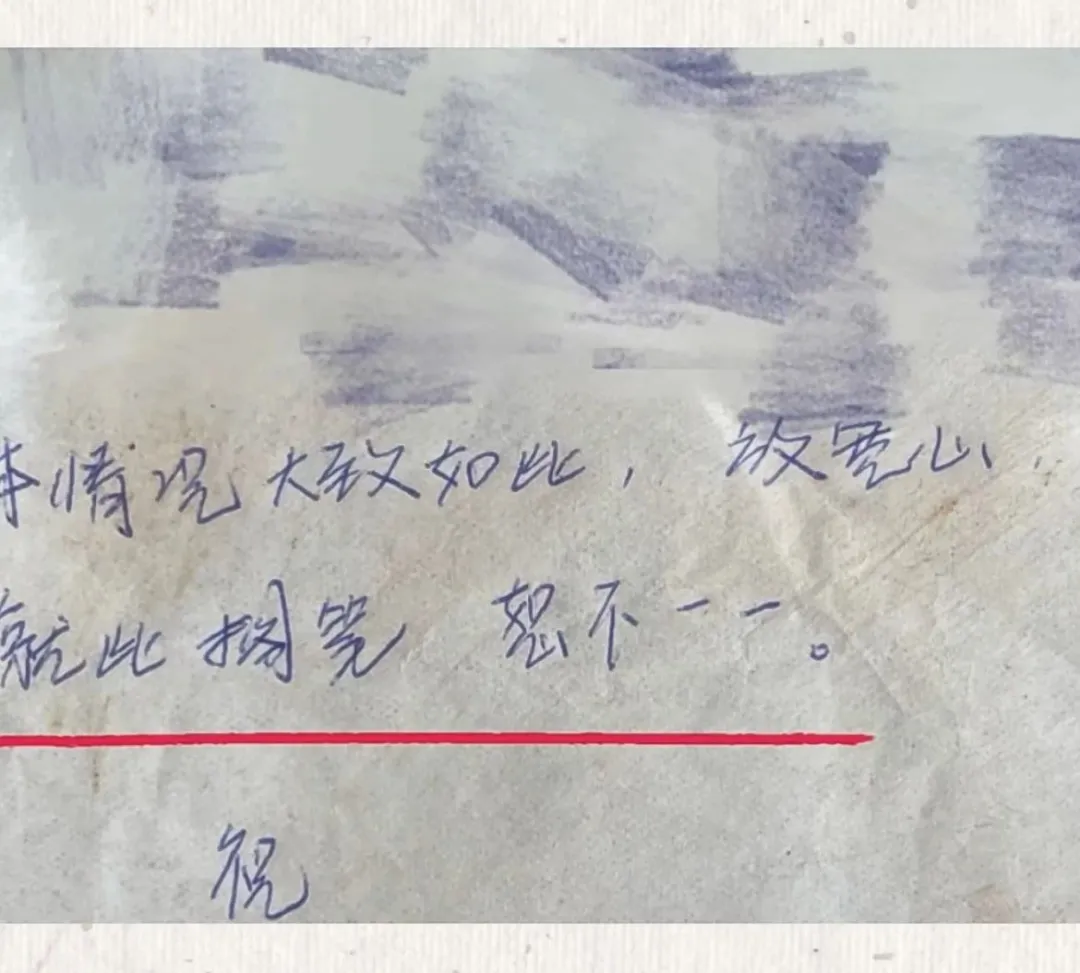 体情况大致如此，放宽心、
就此搁笔 恕不一一。
祝